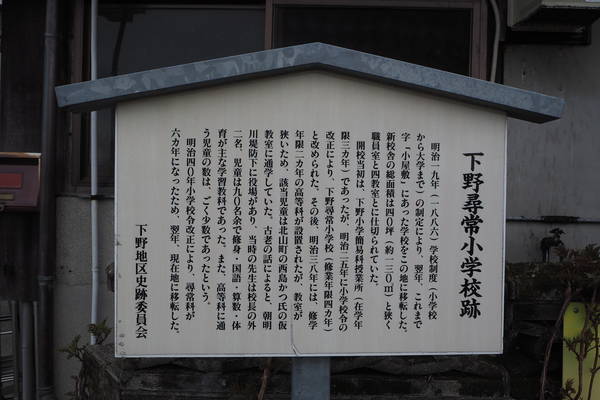 下野尋常小学校跡
明治一九年（一八八六）学校制度（小学校
から大学まで）の制定により、翌年、これまで
字「小屋敷」にあった学校をこの地に移転した。
新校舎の総面積は四〇坪（約一三〇㎡）と狭く
職員室と四教室とに仕切られていた。
開校当初は、下野小学簡易科授業所（在学年
限三カ年）であったが、明治二五年に小学校令の
改正により、下野尋常小学校（修業年限四カ年）
と改められた。その後、明治三八年には、修学
年限二カ年の高等科が設置されたが、教室が
狭いため、該当児童は北山町の西島かつ氏の仮
教室に通学していた。古老の話によると、朝明
川堤防下に役場があり、当時の先生は校長の外
二名、児童は九〇名余で修身・国語・算数・体
育が主な学習教科であった。また、高等科に通
う児童の数は、ごく少数であったという。
明治四〇年小学校令改正により、尋常科が
六カ年になったため、翌年、現在地に移転した。
下野地区史跡委員会